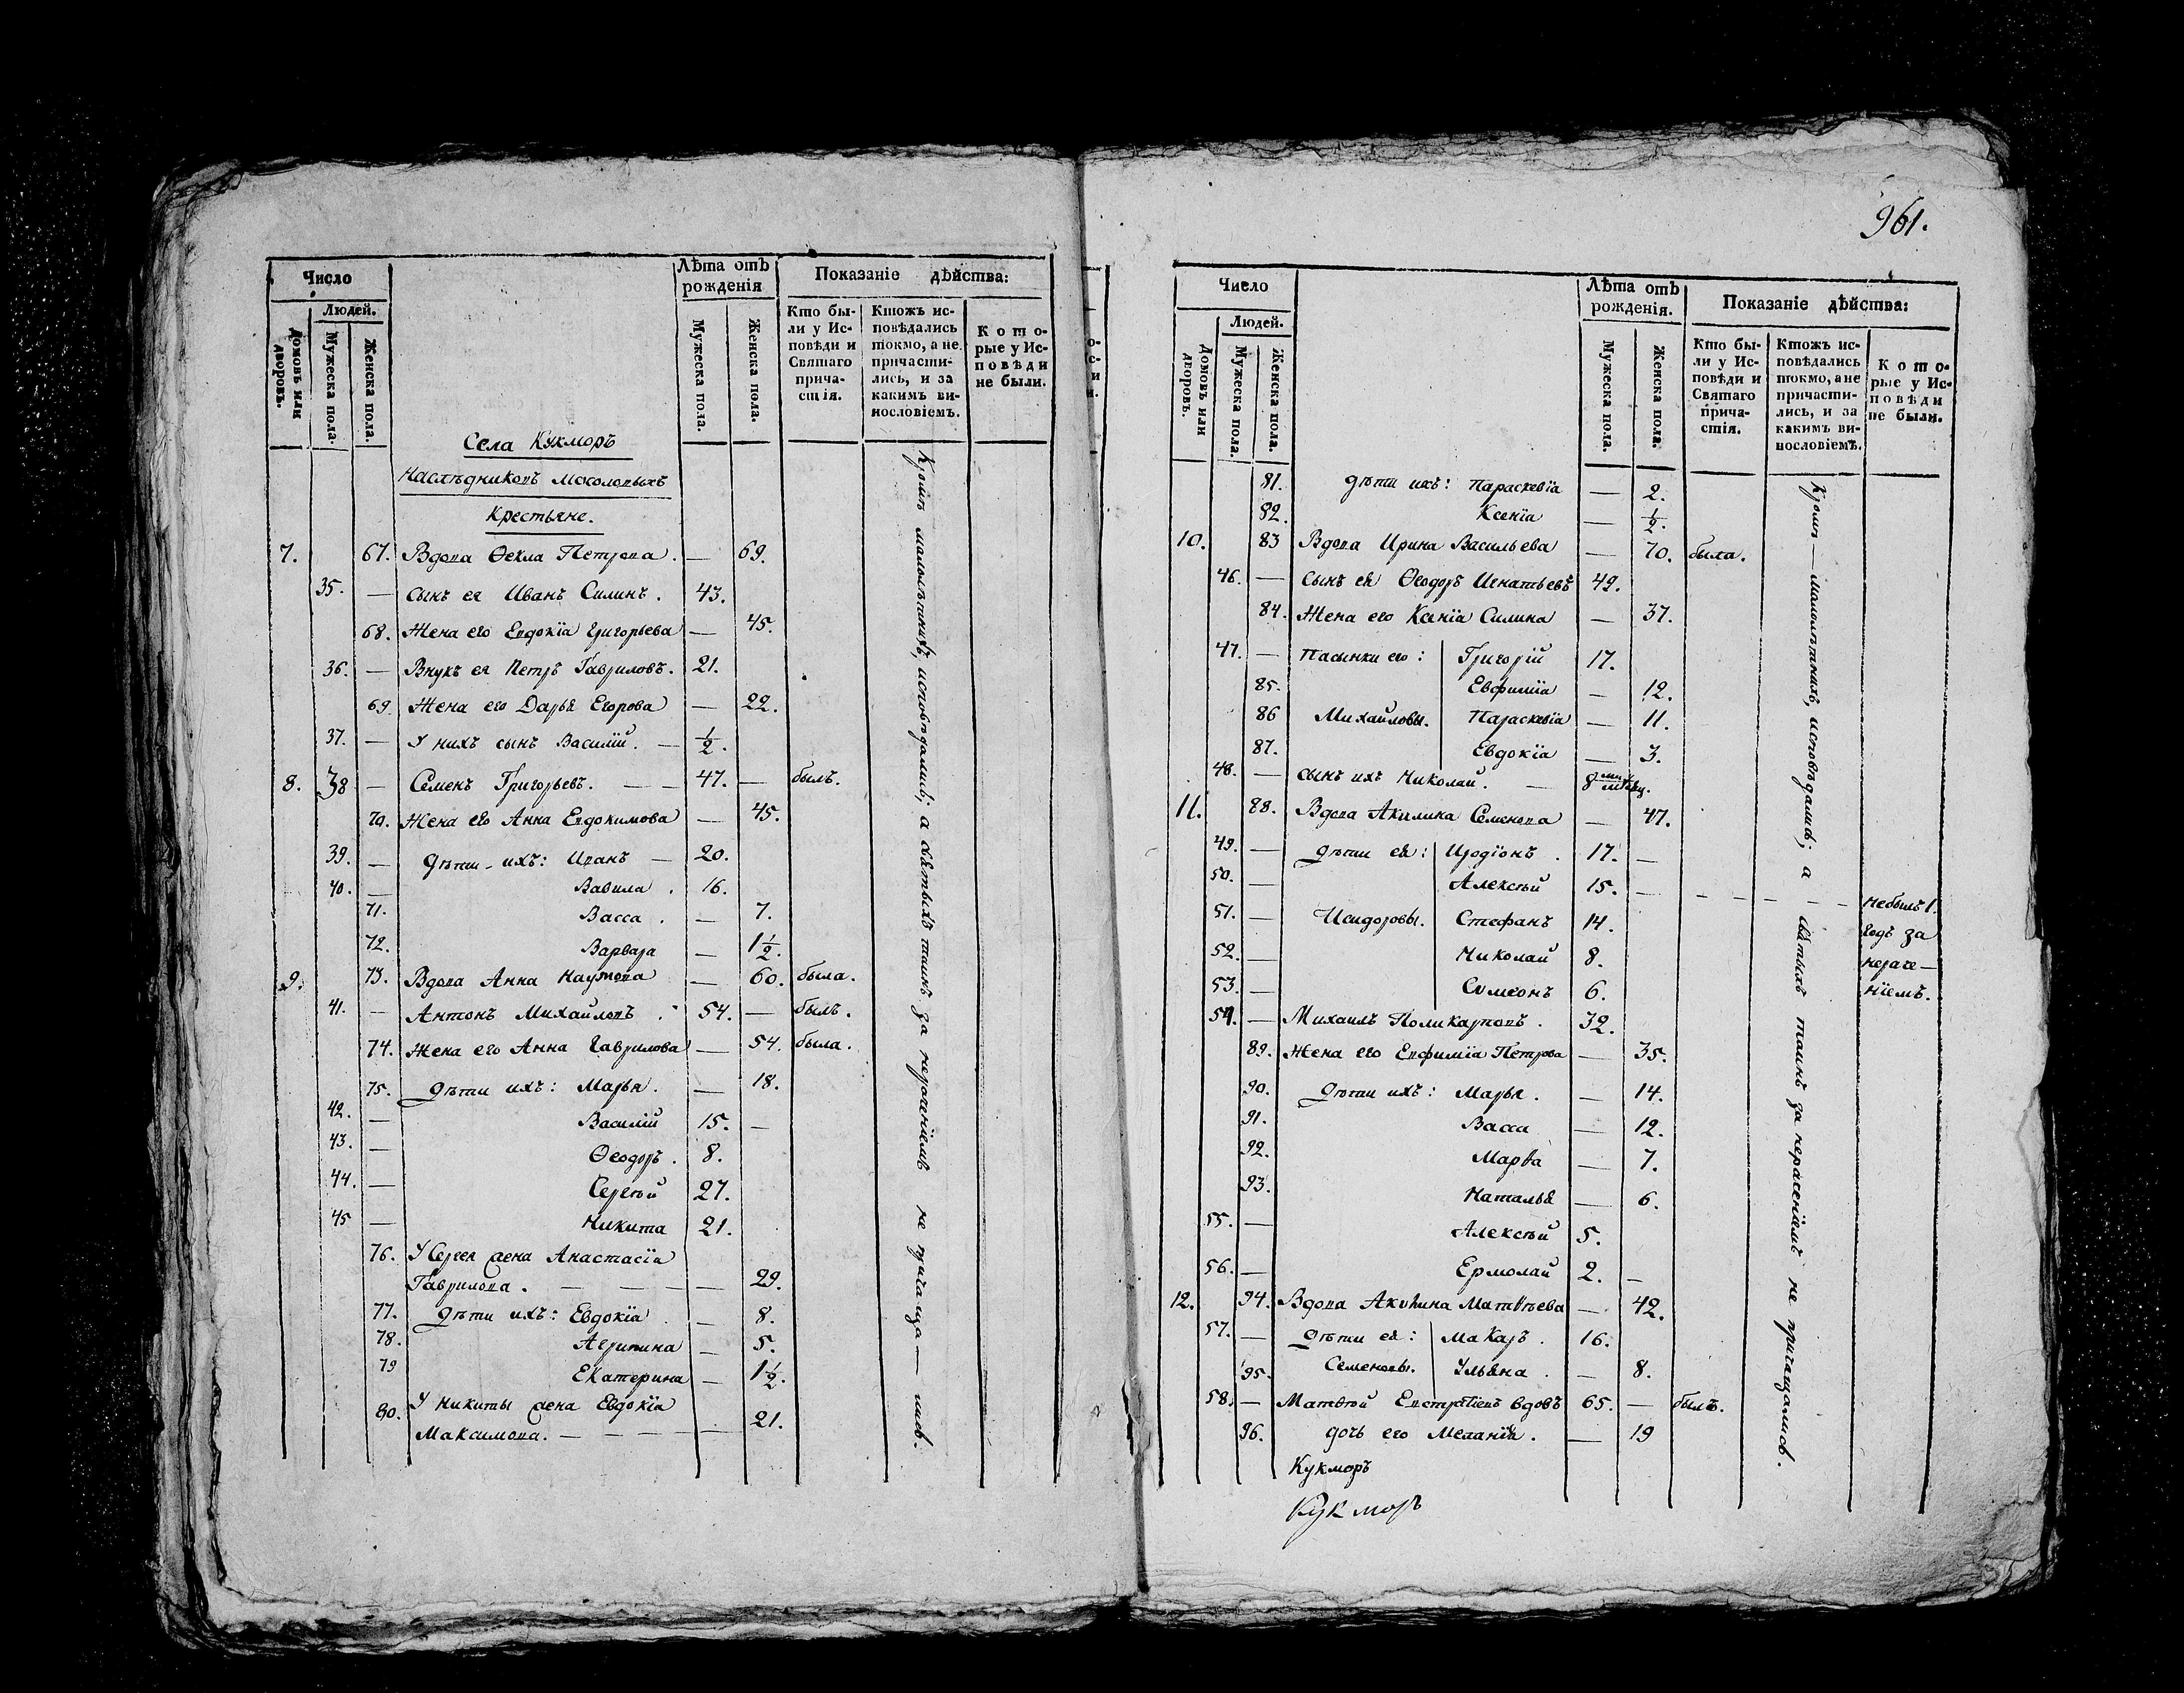 Число
Людей.
Домовъ или дворовъ.
Мужеска пола.
Женска пола.
Лѣта отъ рожденія
Мужеска пола.
Женска пола.
Показаніе дѣйства:
Кто бы-
ли у Ис-
повѣди и
Святаго
прича-
стія.
Ктожъ ис-
повѣдались
токмо, а не
причасти-
лись, и за
какимъ ви-
нословіемъ.
Кото-
рые у Ис-
повѣди
не были.
Села Кукморъ
Наслѣдниковъ
Крестьяне.
7. 67. Вдова Ѳекла Петрова. — 69.
35. — Сынъ ея Иванъ Силинъ. 43.
68. Жена его Евдокіа Григорьева — 45.
36. — Внукъ ея Петръ Гавриловъ. 21.
69. Жена его Дарья Егорова — 22.
37. — У нихъ сынъ Василій. — 1/2.
8. 38 — Семенъ Григорьевъ. — — 47. — былъ.
70. Жена его Анна Евдокимова — 45.
39. — Дѣти ихъ: Иванъ — 20.
40. — Вавила. 16.
71. Васса. — 7.
72. Варвара — 1 1/2.
9. 73. Вдова Анна Наумова — 60. была.
41. — Антонъ Михайловъ. 54. — былъ.
74. Жена его Анна Гаврилова — 54. была.
75. Дѣти ихъ: Марья. — 18.
42. — Василій 15. —
43. — Ѳеодоръ. 8.
44. — Сергѣй 27.
45 — Никита 21.
76. У Сергея жена Анастасіа
Гаврилова. — — — — 29.
77. Дѣти ихъ: Евдокіа. — 8.
78. Агрипина — 5.
79 Екатерина — 1 1/2.
80. У Никиты жена Евдокіа
Максимова. — — — — 21.
Кромѣ малолѣтнихъ, исповѣдались; а святыхъ таинъ за нераченіемъ не причаща — лись.
961.
Число
Людей.
Домовъ или дворовъ.
Мужеска пола.
Женска пола.
Лѣта отъ рожденія.
Мужеска пола.
Женска пола.
Показаніе дѣйства:
Кто бы-
ли у Ис-
повѣди и
Святаго
прича-
стія.
Ктожъ ис-
повѣдались
токмо, а не
причасти-
лись, и за
какимъ ви-
нословіемъ.
Кото-
рые у Ис-
повѣди
не были.
81. Дѣти ихъ: Параскевіа — 2.
82. Ксеніа — 1/2.
10. 83 Вдова Ирина Васильева — 70. была.
46. — Сынъ ея Ѳеодоръ Игнатьевъ 49.
84. Жена его Ксеніа Силина — 37.
47. — Пасынки его: Григорій 17.
85. Евфиміа — 12.
86 Михайловы. Параскевіа — 11.
87. Евдокіа — 3.
48. — сынъ ихъ Николай. — 8
11. 88. Вдова Акилина Семенова — 47.
49. — Дѣти ея: Иродіонъ. 17. —
50. — Алексѣй 15. — — — — — Небылъ 1.
51. — Исидоровы. Стефанъ 14. годъ за
52. — Николай 8. нераче —
53. — Симеонъ 6. ніемъ.
54. — Михаилъ Поликарповъ. 32.
89. Жена его Евфиміа Петрова — 35.
90. Дѣти ихъ: Марья. — 14.
91. Васса — 12.
92. Марѳа — 7.
93. Наталья — 6.
55. — Алексѣй 5.
56. — Ермолай 2. —
12. 94. Вдова Акилина Матвѣева — 42.
57. — Дѣти ея: Макаръ. 16.
95. Семеновы. Ульяна. — 8.
58. — Матвѣй Евстратіевъ вдовъ 65. — былъ.
96. дочь его Меланіа. — 19
Кукморъ
Кукморъ
Кромѣ — малолѣтнихъ, исповѣдались; а святыхъ таинъ за нераченіемъ не причащались.